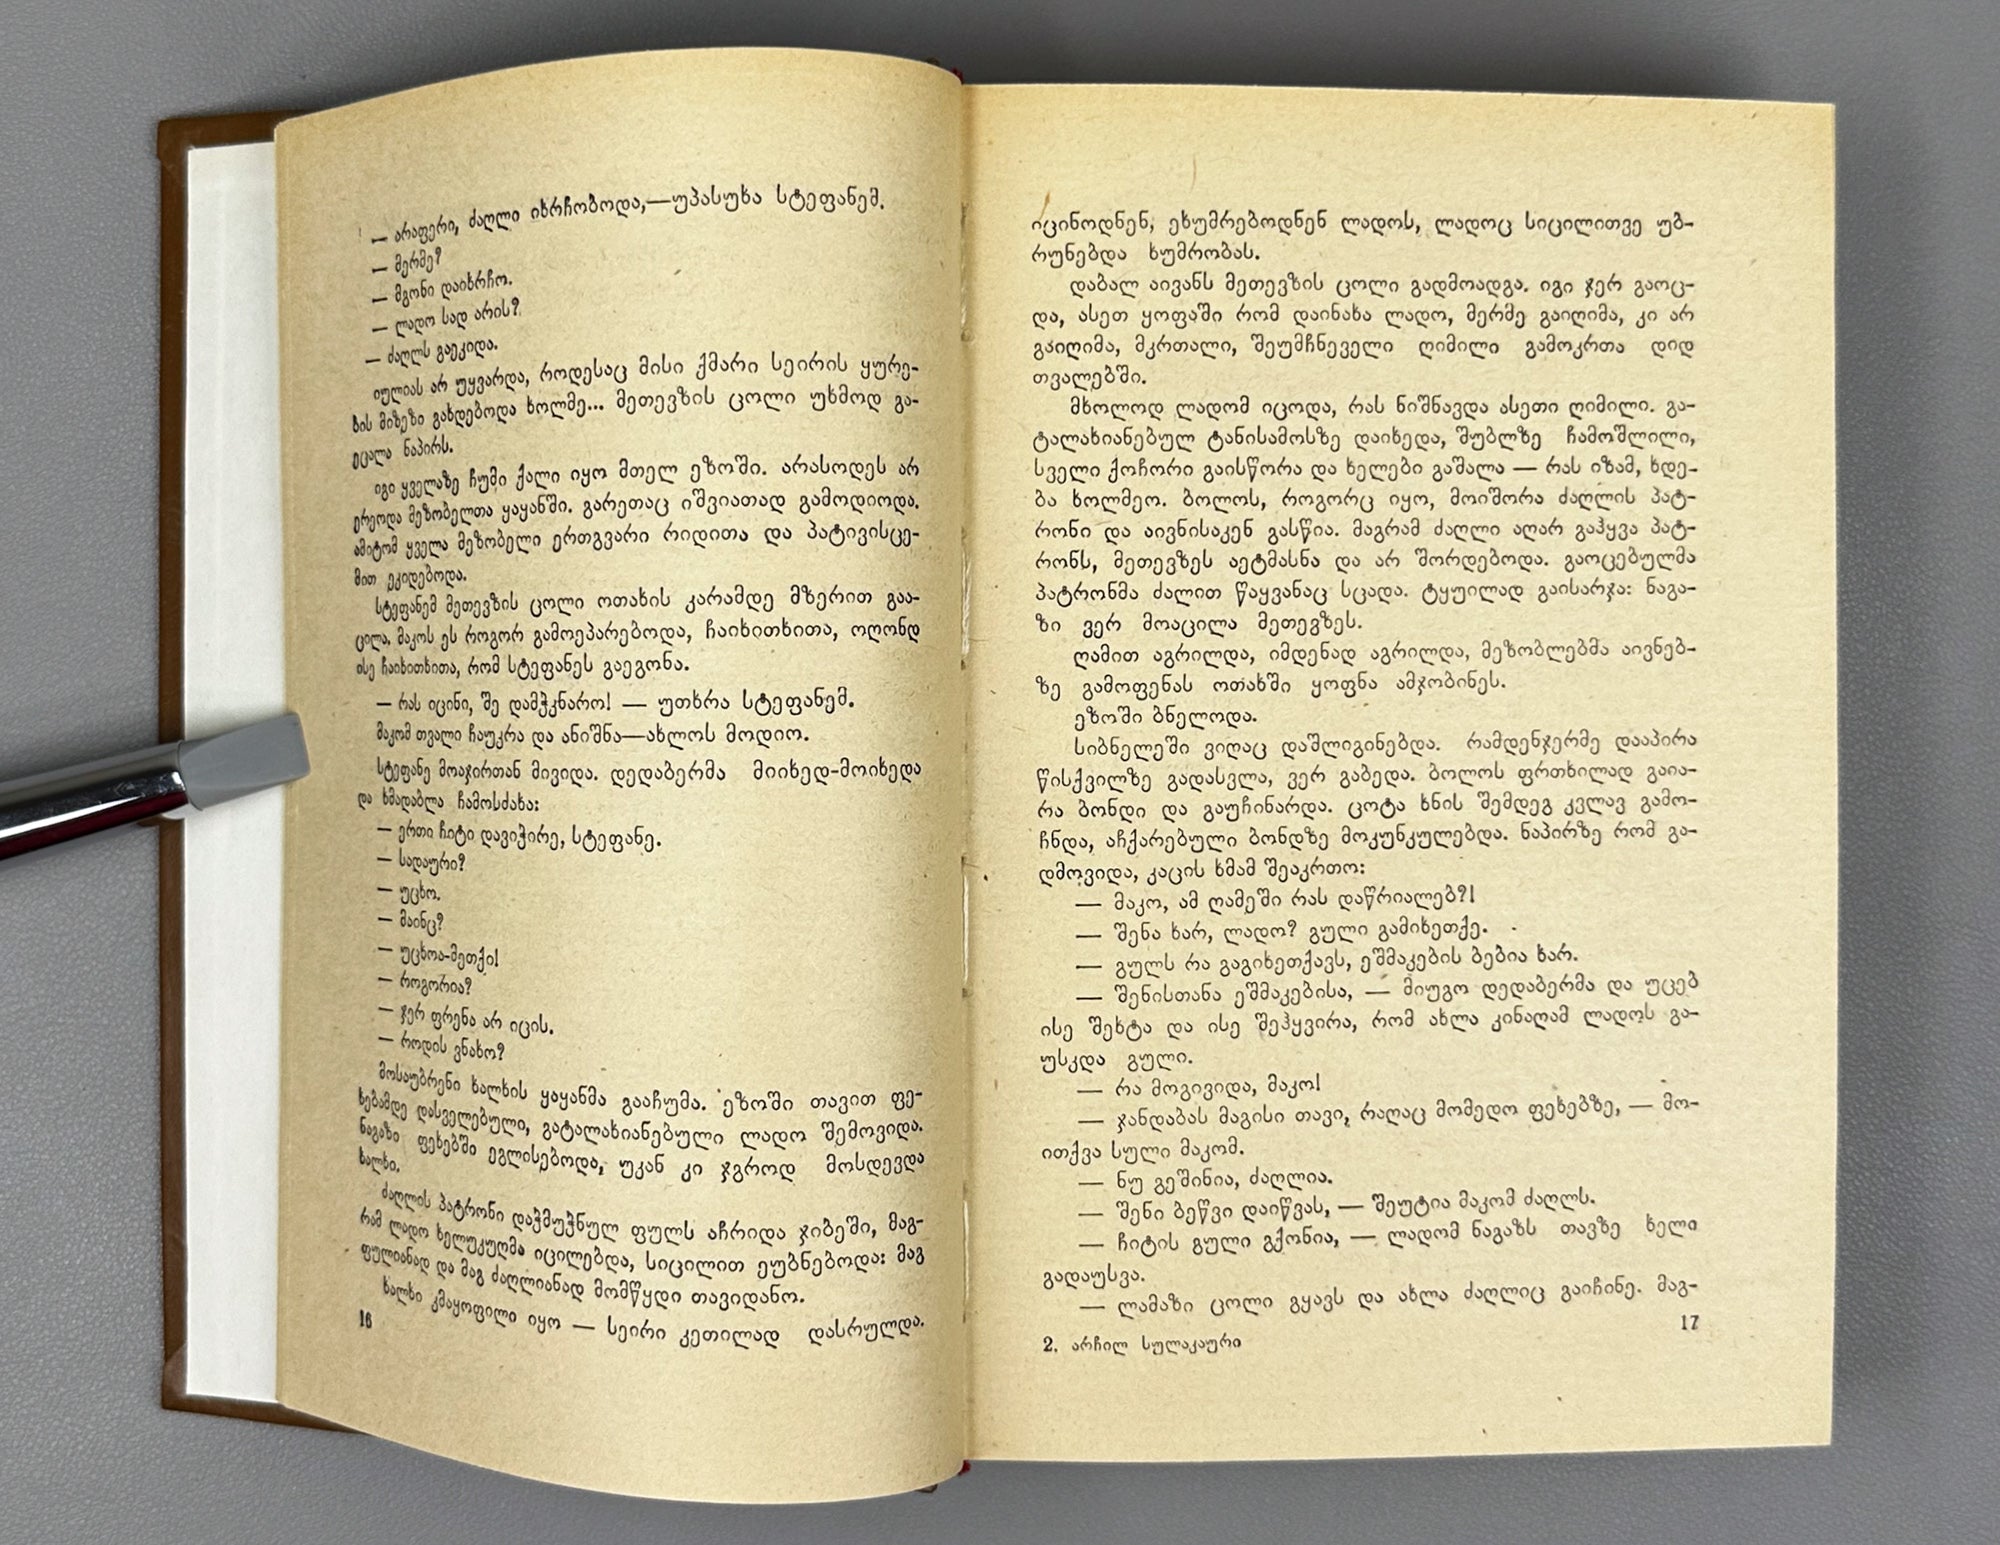 — არაფერი, ძაღლი იხრჩობოდა,—უპასუხა სტეფანემ.
— მერმე?
— მგონი დაიხრჩო.
— ლადო სად არის?
— ძაღლს გაეკიდა.
იულიას არ უყვარდა, როდესაც მისი ქმარი სეირის ყურე-
ბის მიზეზი გახდებოდა ხოლმე... მეთევზის ცოლი უხმოდ გა-
ეცალა ნაპირს.
იგი ყველაზე ჩუმი ქალი იყო მთელ ეზოში. არასოდეს არ
ერეოდა მეზობელთა ყაყანში. გარეთაც იშვიათად გამოდიოდა.
ამიტომ ყველა მეზობელი ერთგვარი რიდითა და პატივისცე-
მით ეკიდებოდა.
სტეფანემ მეთევზის ცოლი ოთახის კარამდე მზერით გაა-
ცილა. მაკოს ეს როგორ გამოეპარებოდა, ჩაიხითხითა, ოღონდ
ისე ჩაიხითხითა, რომ სტეფანეს გაეგონა.
— რას იცინი, შე დამჭკნარო! — უთხრა სტეფანემ.
მაკომ თვალი ჩაუკრა და ანიშნა—ახლოს მოდიო.
სტეფანე მოაჯირთან მივიდა. დედაბერმა მიიხედ-მოიხედა
და ხმადაბლა ჩამოსძახა:
— ერთი ჩიტი დავიჭირე, სტეფანე.
— სადაური?
— უცხო.
— მაინც?
— უცხოა-მეთქი!
— როგორია?
— ჯერ ფრენა არ იცის.
— როდის ვნახო?
მოსაუბრენი ხალხის ყაყანმა გააჩუმა. ეზოში თავით ფე-
ხებამდე დასველებული, გატალახიანებული ლადო შემოვიდა.
ნაგაზი ფეხებში ეგლისებოდა, უკან კი ჯგროდ მოსდევდა
ხალხი.
ძაღლის პატრონი დაჭმუჭნულ ფულს აჩრიდა ჯიბეში, მაგ-
რამ ლადო ხელუკუღმა იცილებდა, სიცილით ეუბნებოდა: მაგ
ფულიანად და მაგ ძაღლიანად მომწყდი თავიდანო.
ხალხი კმაყოფილი იყო — სეირი კეთილად დასრულდა.
16
იცინოდნენ, ეხუმრებოდნენ ლადოს, ლადოც სიცილითვე უბ-
რუნებდა ხუმრობას.
დაბალ აივანს მეთევზის ცოლი გადმოადგა. იგი ჯერ გაოც-
და, ასეთ ყოფაში რომ დაინახა ლადო, მერმე გაიღიმა, კი არ
გაიღიმა, მკრთალი, შეუმჩნეველი ღიმილი გამოკრთა დიდ
თვალებში.
მხოლოდ ლადომ იცოდა, რას ნიშნავდა ასეთი ღიმილი. გა-
ტალახიანებულ ტანისამოსზე დაიხედა, შუბლზე ჩამოშლილი,
სველი ქოჩორი გაისწორა და ხელები გაშალა — რას იზამ, ხდე-
ბა ხოლმეო. ბოლოს, როგორც იყო, მოიშორა ძაღლის პატ-
რონი და აივნისაკენ გასწია. მაგრამ ძაღლი აღარ გაჰყვა პატ-
რონს, მეთევზეს აეტმასნა და არ შორდებოდა. გაოცებულმა
პატრონმა ძალით წაყვანაც სცადა. ტყუილად გაისარჯა: ნაგა-
ზი ვერ მოაცილა მეთევზეს.
ღამით აგრილდა, იმდენად აგრილდა, მეზობლებმა აივნებ-
ზე გამოფენას ოთახში ყოფნა ამჯობინეს.
ეზოში ბნელოდა.
სიბნელეში ვიღაც დაშლიგინებდა. რამდენჯერმე დააპირა
წისქვილზე გადასვლა, ვერ გაბედა. ბოლოს ფრთხილად გაია-
რა ბონდი და გაუჩინარდა. ცოტა ხნის შემდეგ კვლავ გამო-
ჩნდა, აჩქარებული ბონდზე მოკუნკულებდა. ნაპირზე რომ გა-
დმოვიდა, კაცის ხმამ შეაკრთო:
— მაკო, ამ ღამეში რას დაწრიალებ?!
— შენა ხარ, ლადო? გული გამიხეთქე.
— გულს რა გაგიხეთქავს, ეშმაკების ბებია ხარ.
— შენისთანა ეშმაკებისა, — მიუგო დედაბერმა და უცებ
ისე შეხტა და ისე შეჰყვირა, რომ ახლა კინაღამ ლადოს გა-
უსკდა გული.
— რა მოგივიდა, მაკო!
— ჯანდაბას მაგისი თავი, რაღაც მომედო ფეხებზე, — მო-
ითქვა სული მაკომ.
— ნუ გეშინია, ძაღლია.
— შენი ბეწვი დაიწვას, — შეუტია მაკომ ძაღლს.
— ჩიტის გული გქონია, — ლადომ ნაგაზს თავზე ხელი
გადაუსვა.
— ლამაზი ცოლი გყავს და ახლა ძაღლიც გაიჩინე. მაგ-
17
2. არჩილ სულაკაური